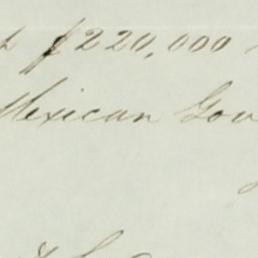 $220,000
Mexican Gov